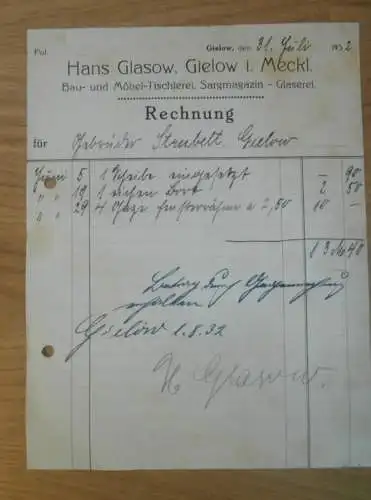 Pol.
Gielow, den 31. Juli 1932
Hans Glasow, Gielow i. Meckl.
Bau- und Möbel-Tischlerei, Sargmagazin - Glaserei.
Rechnung
für Gebrüder Gielow
Juni 5 1 Scheibe eingesetzt – 90
" 19 1 eichen Bort 2 50
" 29 4 Fensterrahmen a 2,50 10 –
13 M 40
Betrag durch
erhalten
Gielow 1.8.32
H. Glasow.